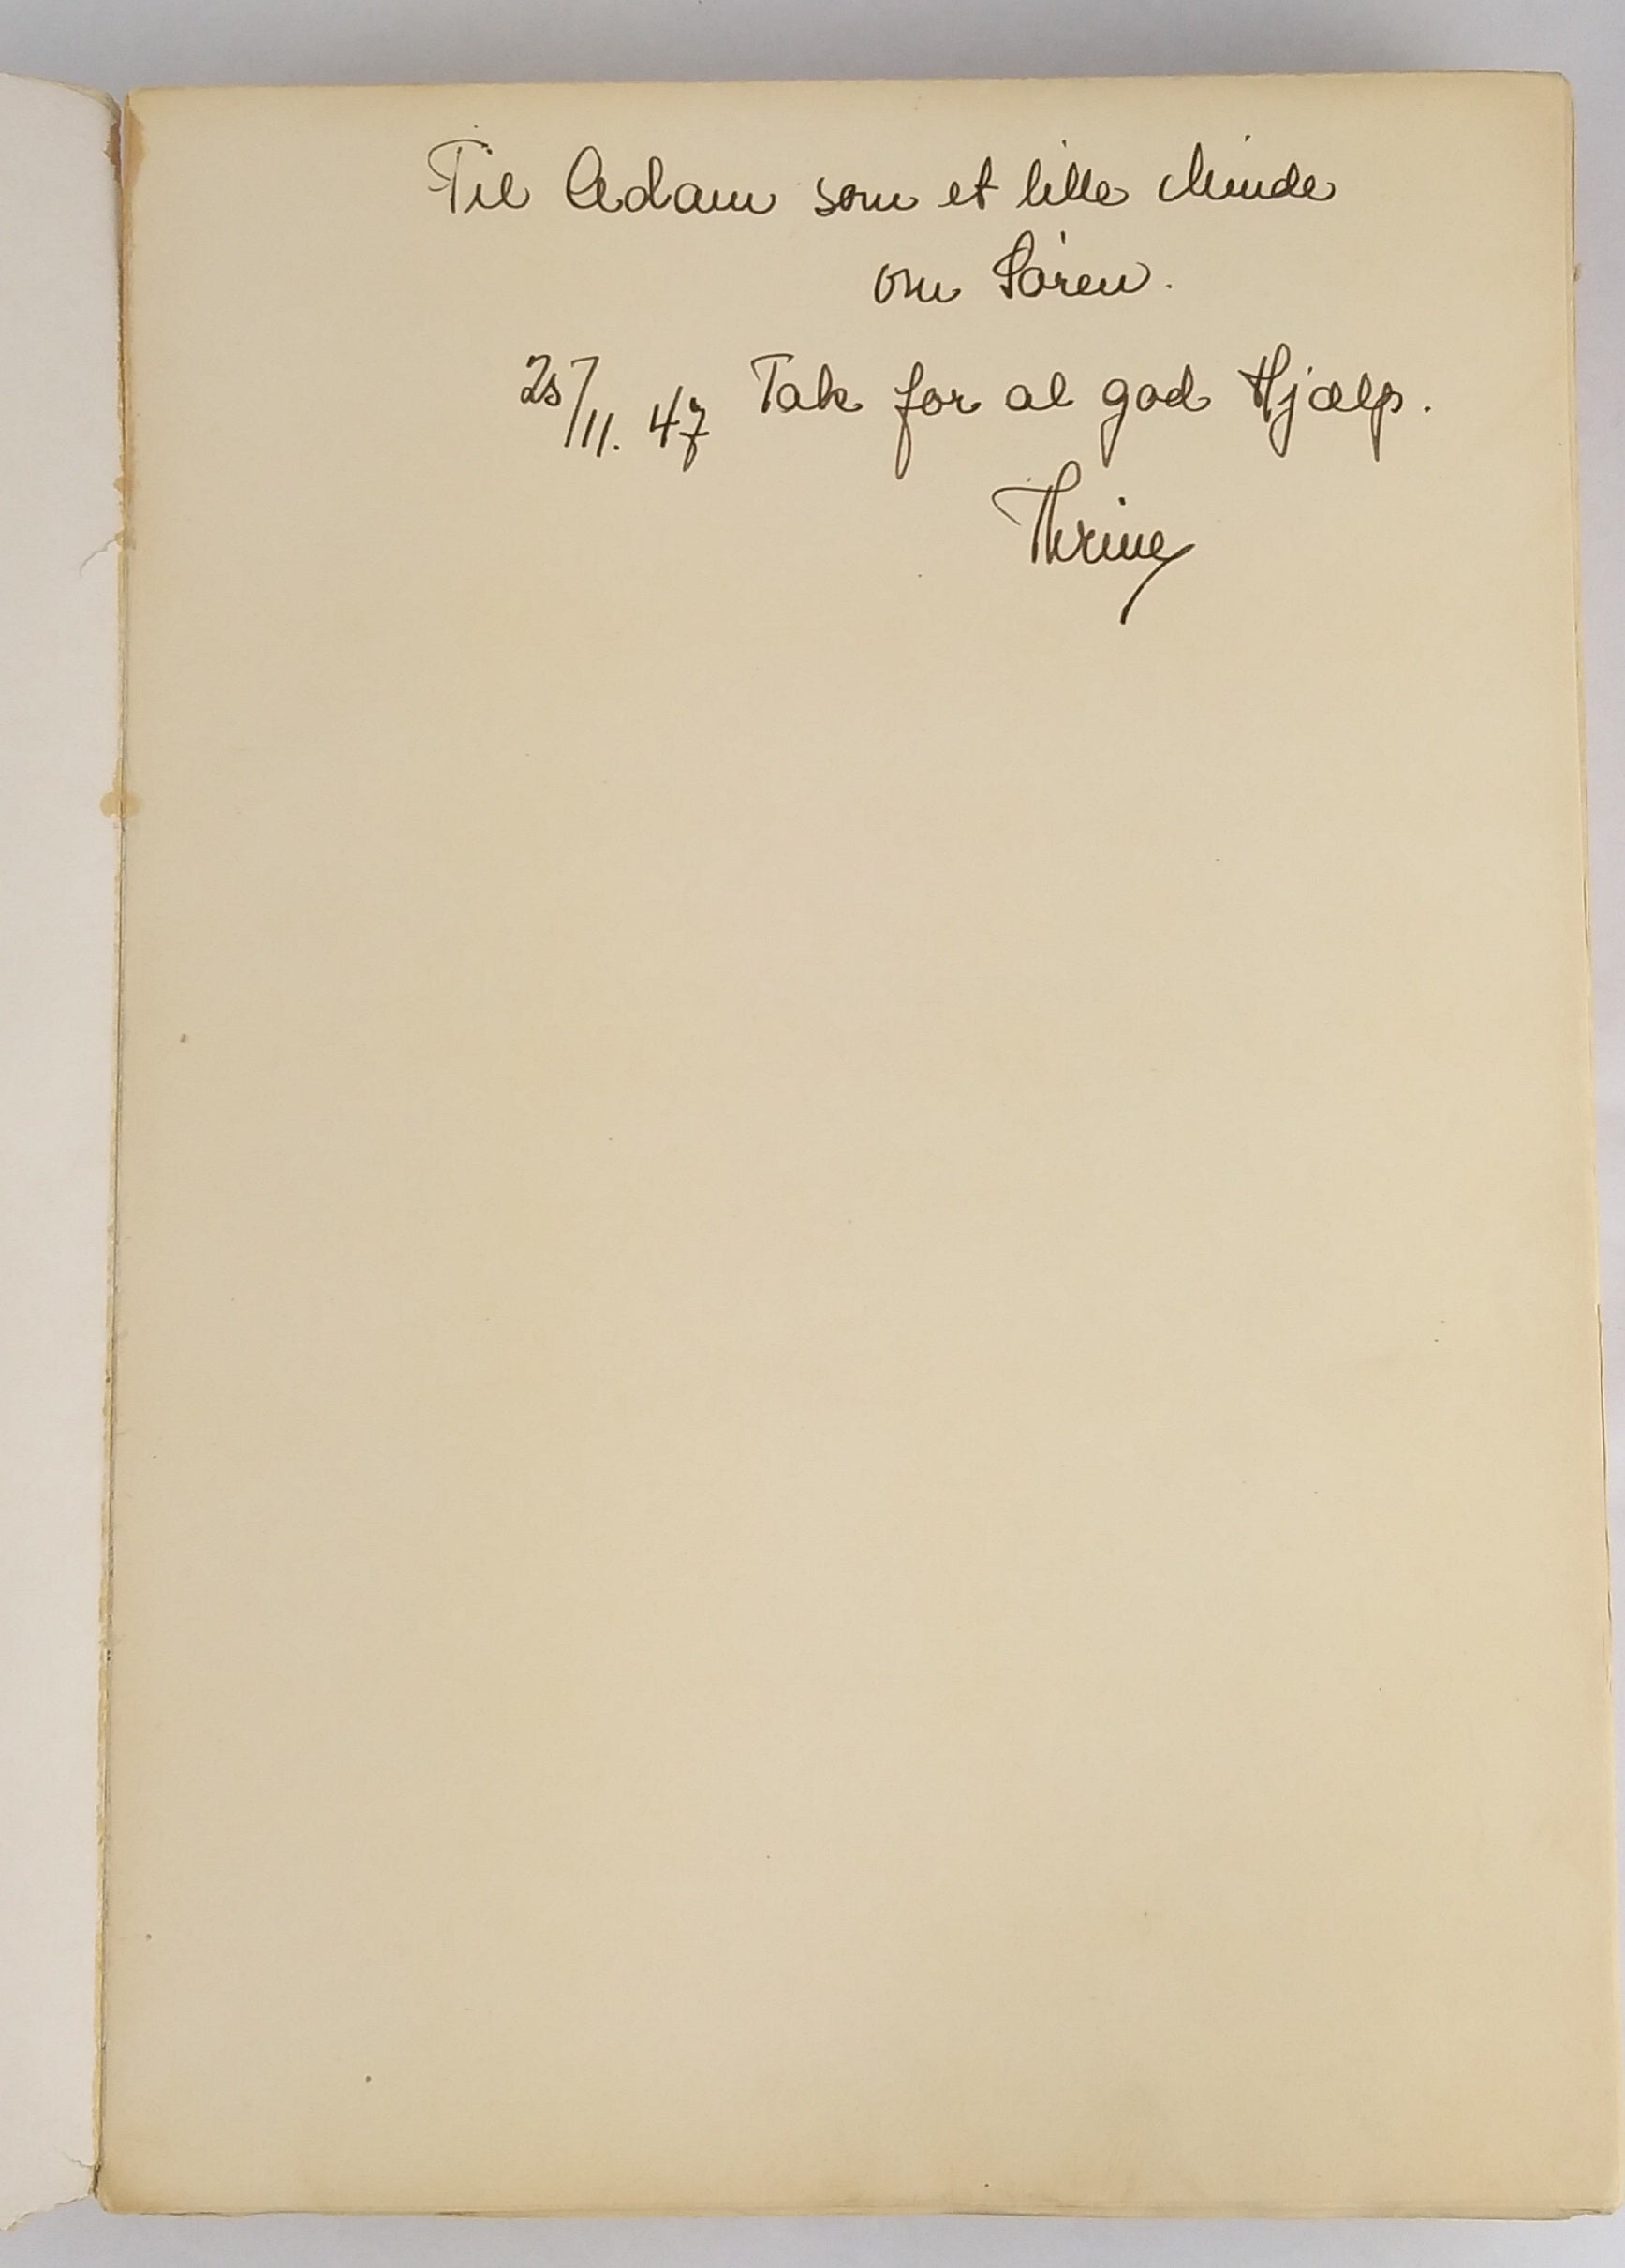 Til Adam som et lille Minde
om Sóren.
25/11. 47 Tak for al god Hjælp.
Thrine